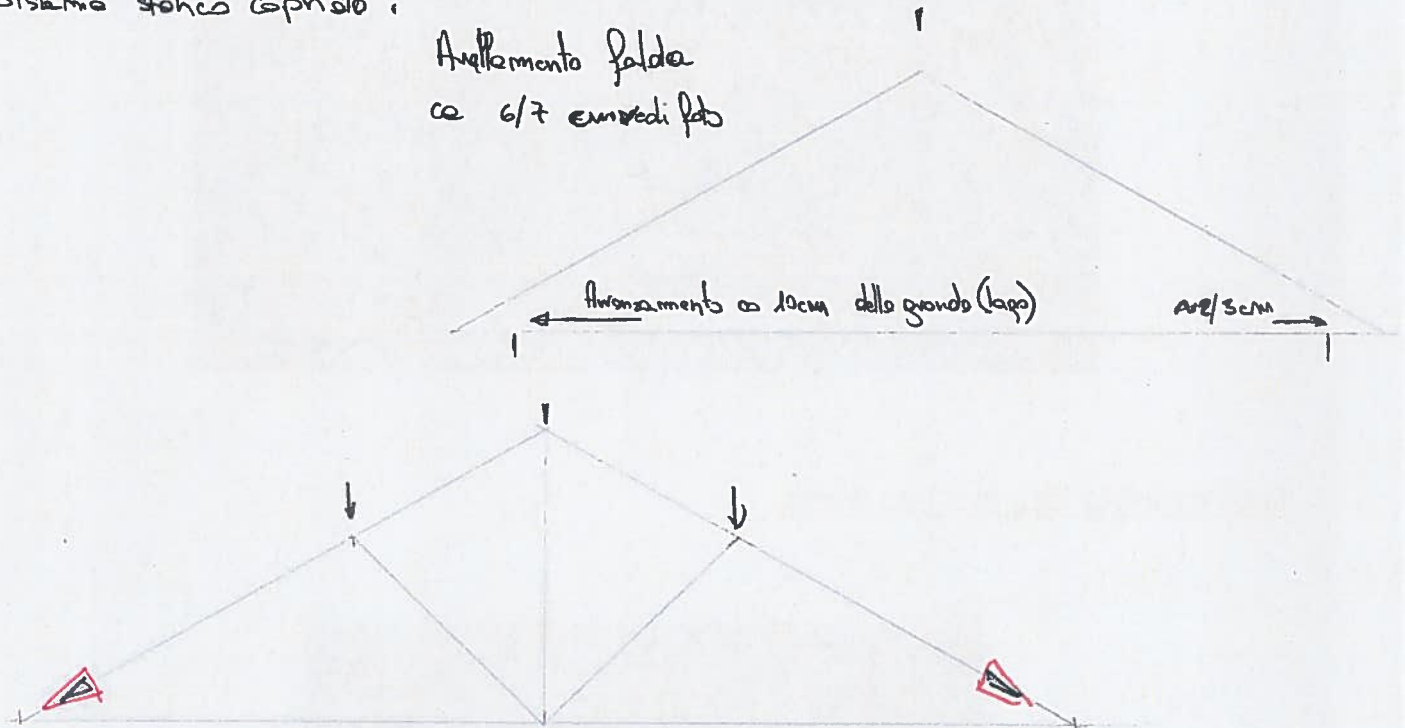 Sistema storico capriate :
Avallamento falda
ca 6/7 cm vedi foto
Avanzamento ca 10cm della gronda (lago)
2/3cm